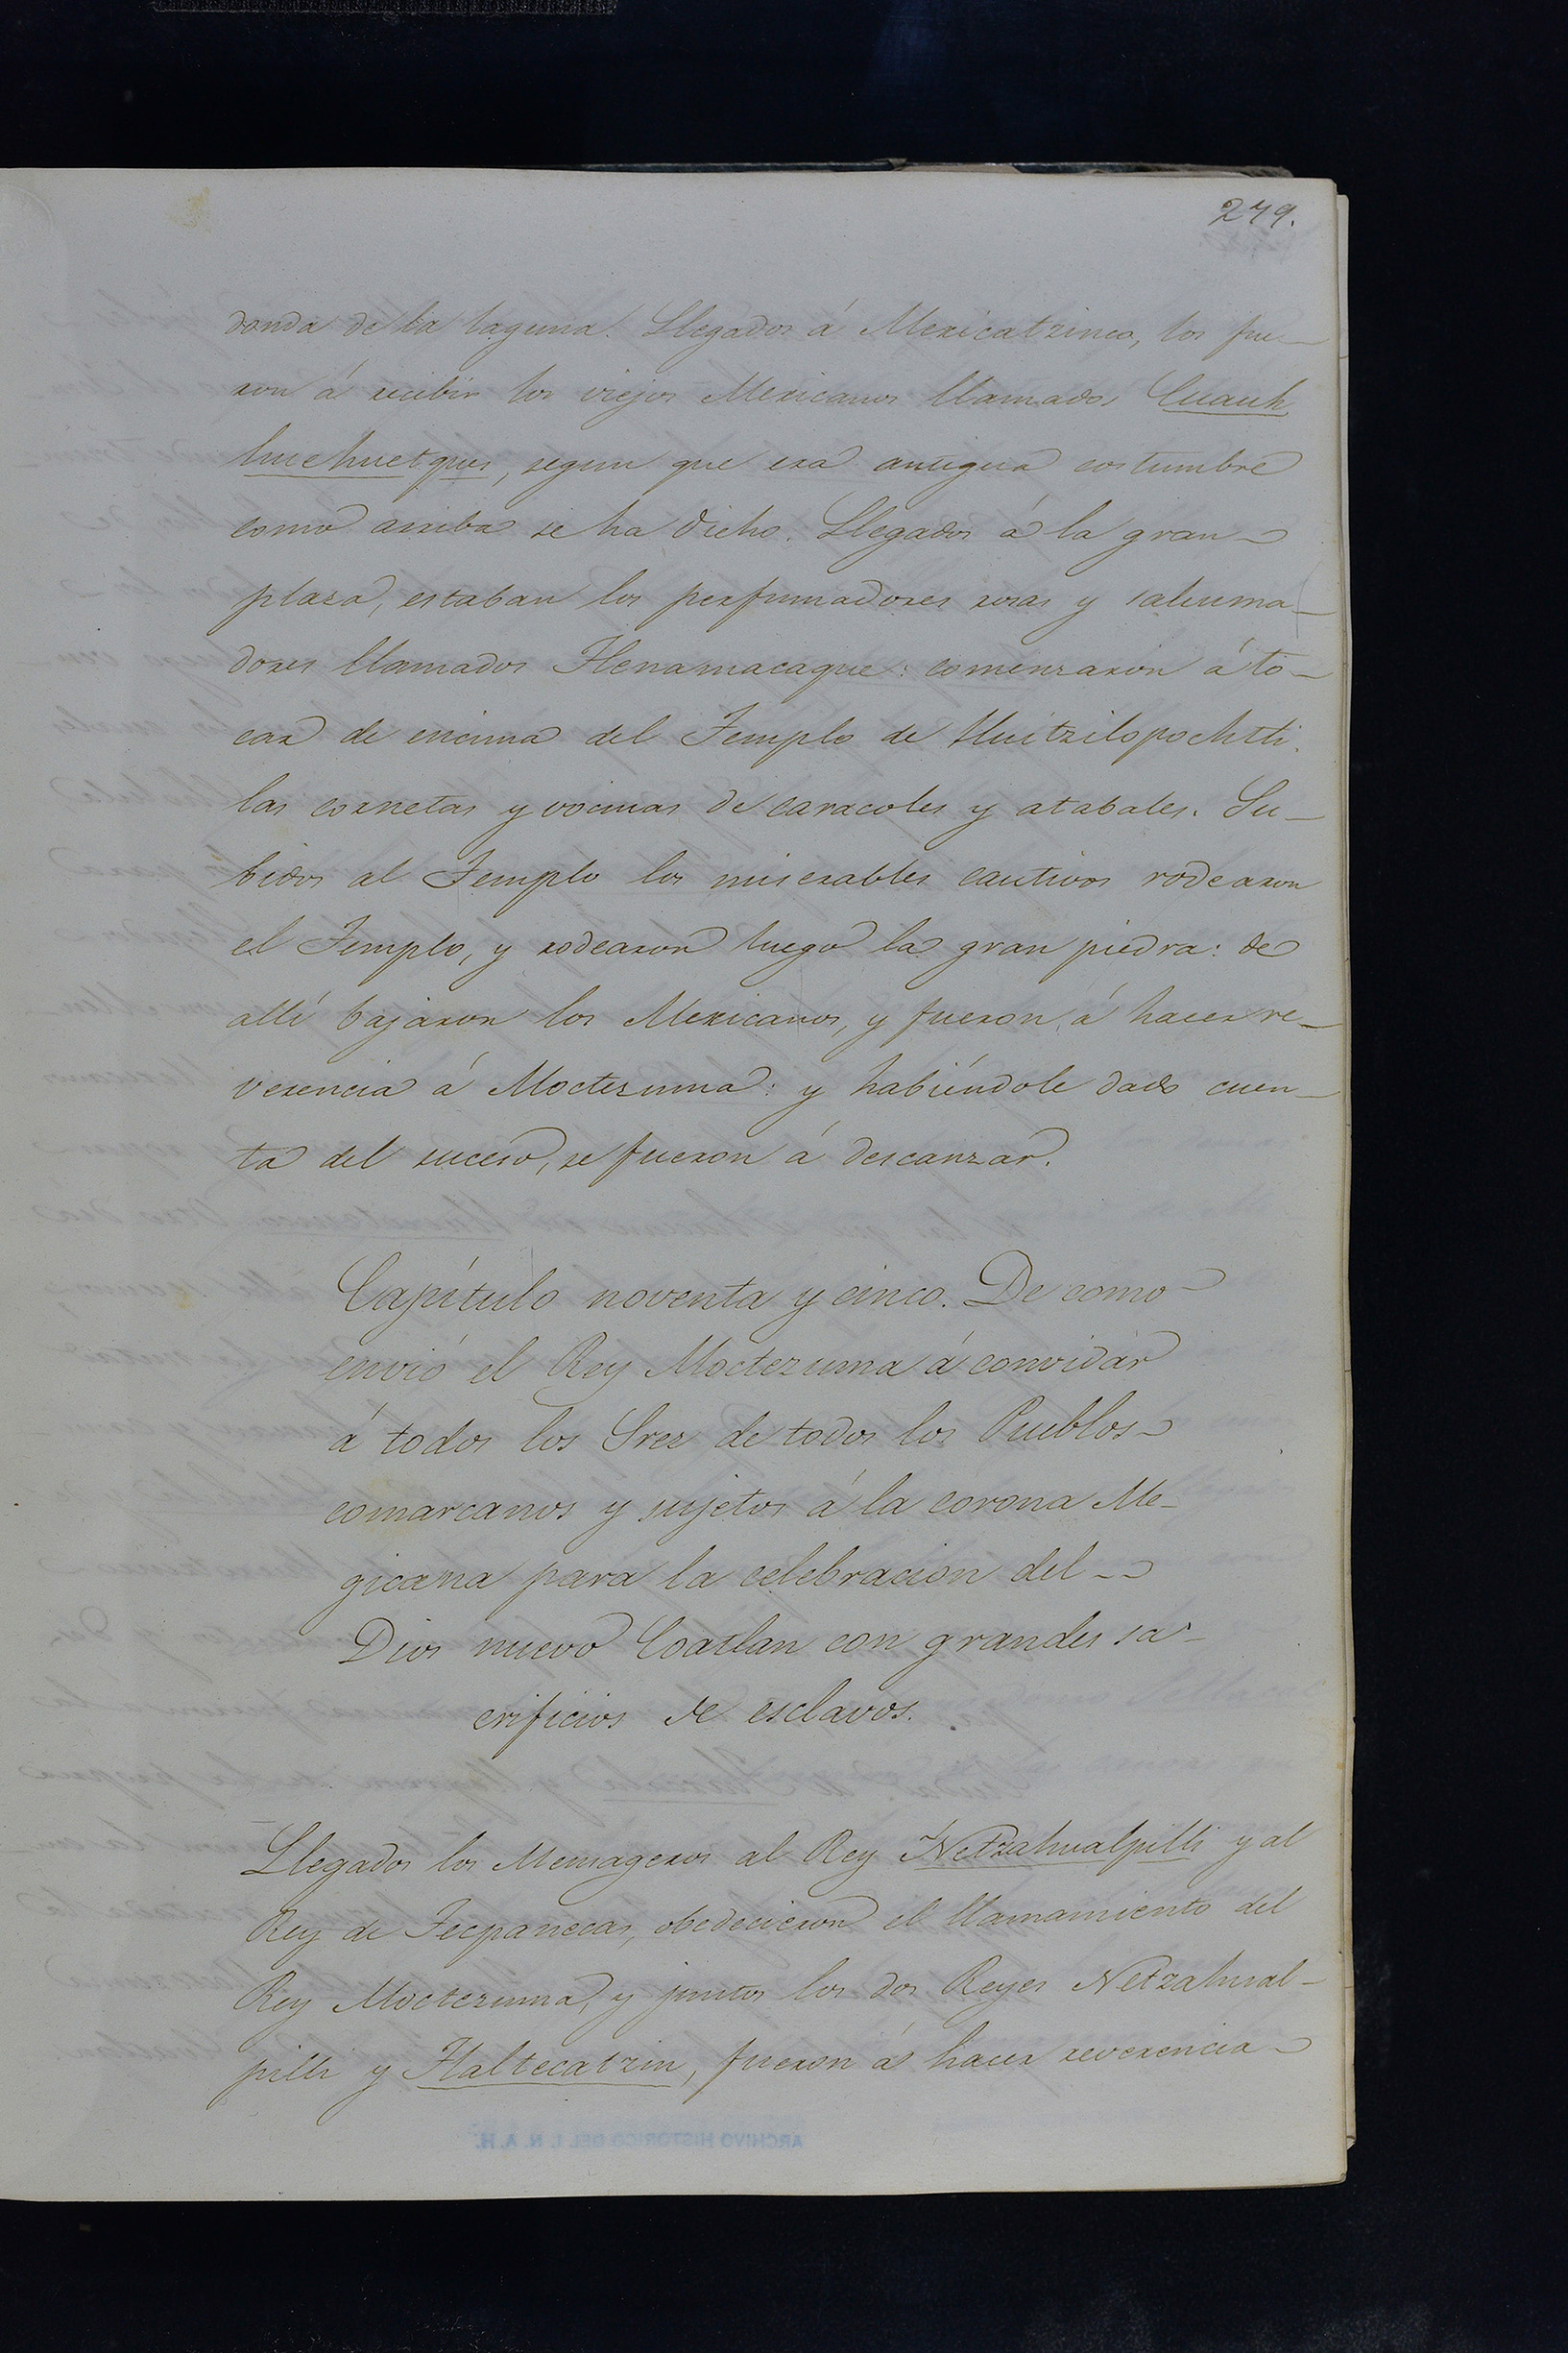 279.
donda de la laguna. Llegados á Mexicatzinco, los fue-
ron á recibir los viejos Mexicanos llamados Cuauh
huehuetques, segun que era antigua costumbre
como arriba se ha dicho. Llegados á la gran
plaza, estaban los perfumadores rosas y sahuma-
dores llamados Tlenamacaque: comenzaron á to-
car de encima del Templo de Huitzilopochtli
las cornetas y vocinas de caracoles y atabales. Su-
bidos al Templo los miserables cautivos rodearon
el Templo, y rodearon luego la gran piedra: de
allí bajaron los Mexicanos, y fueron á hacer re-
verencia á Moctezuma: y habiéndole dado cuen-
ta del suceso, se fueron á descanzar.
Capítulo noventa y cinco. De como
envió el Rey Moctezuma á convidar
á todos los Sres de todos los Pueblos
comarcanos y sujetos á la corona Me-
gicana para la celebracion del
Dios nuevo Coatlan con grandes sa-
crificios de esclavos.
Llegados los Mensageros al Rey Netzahualpilli y al
Rey de Tecpanecas, obedecieron el llamamiento del
Rey Moctezuma, y juntos los dos Reyes Netzahual-
pilli y Tlaltecatzin, fueron á hacer reverencia
ARCHIVO HISTORICO DEL I. N. A. H.